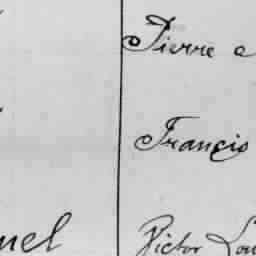 Pierre e
François
nel Victor Lou